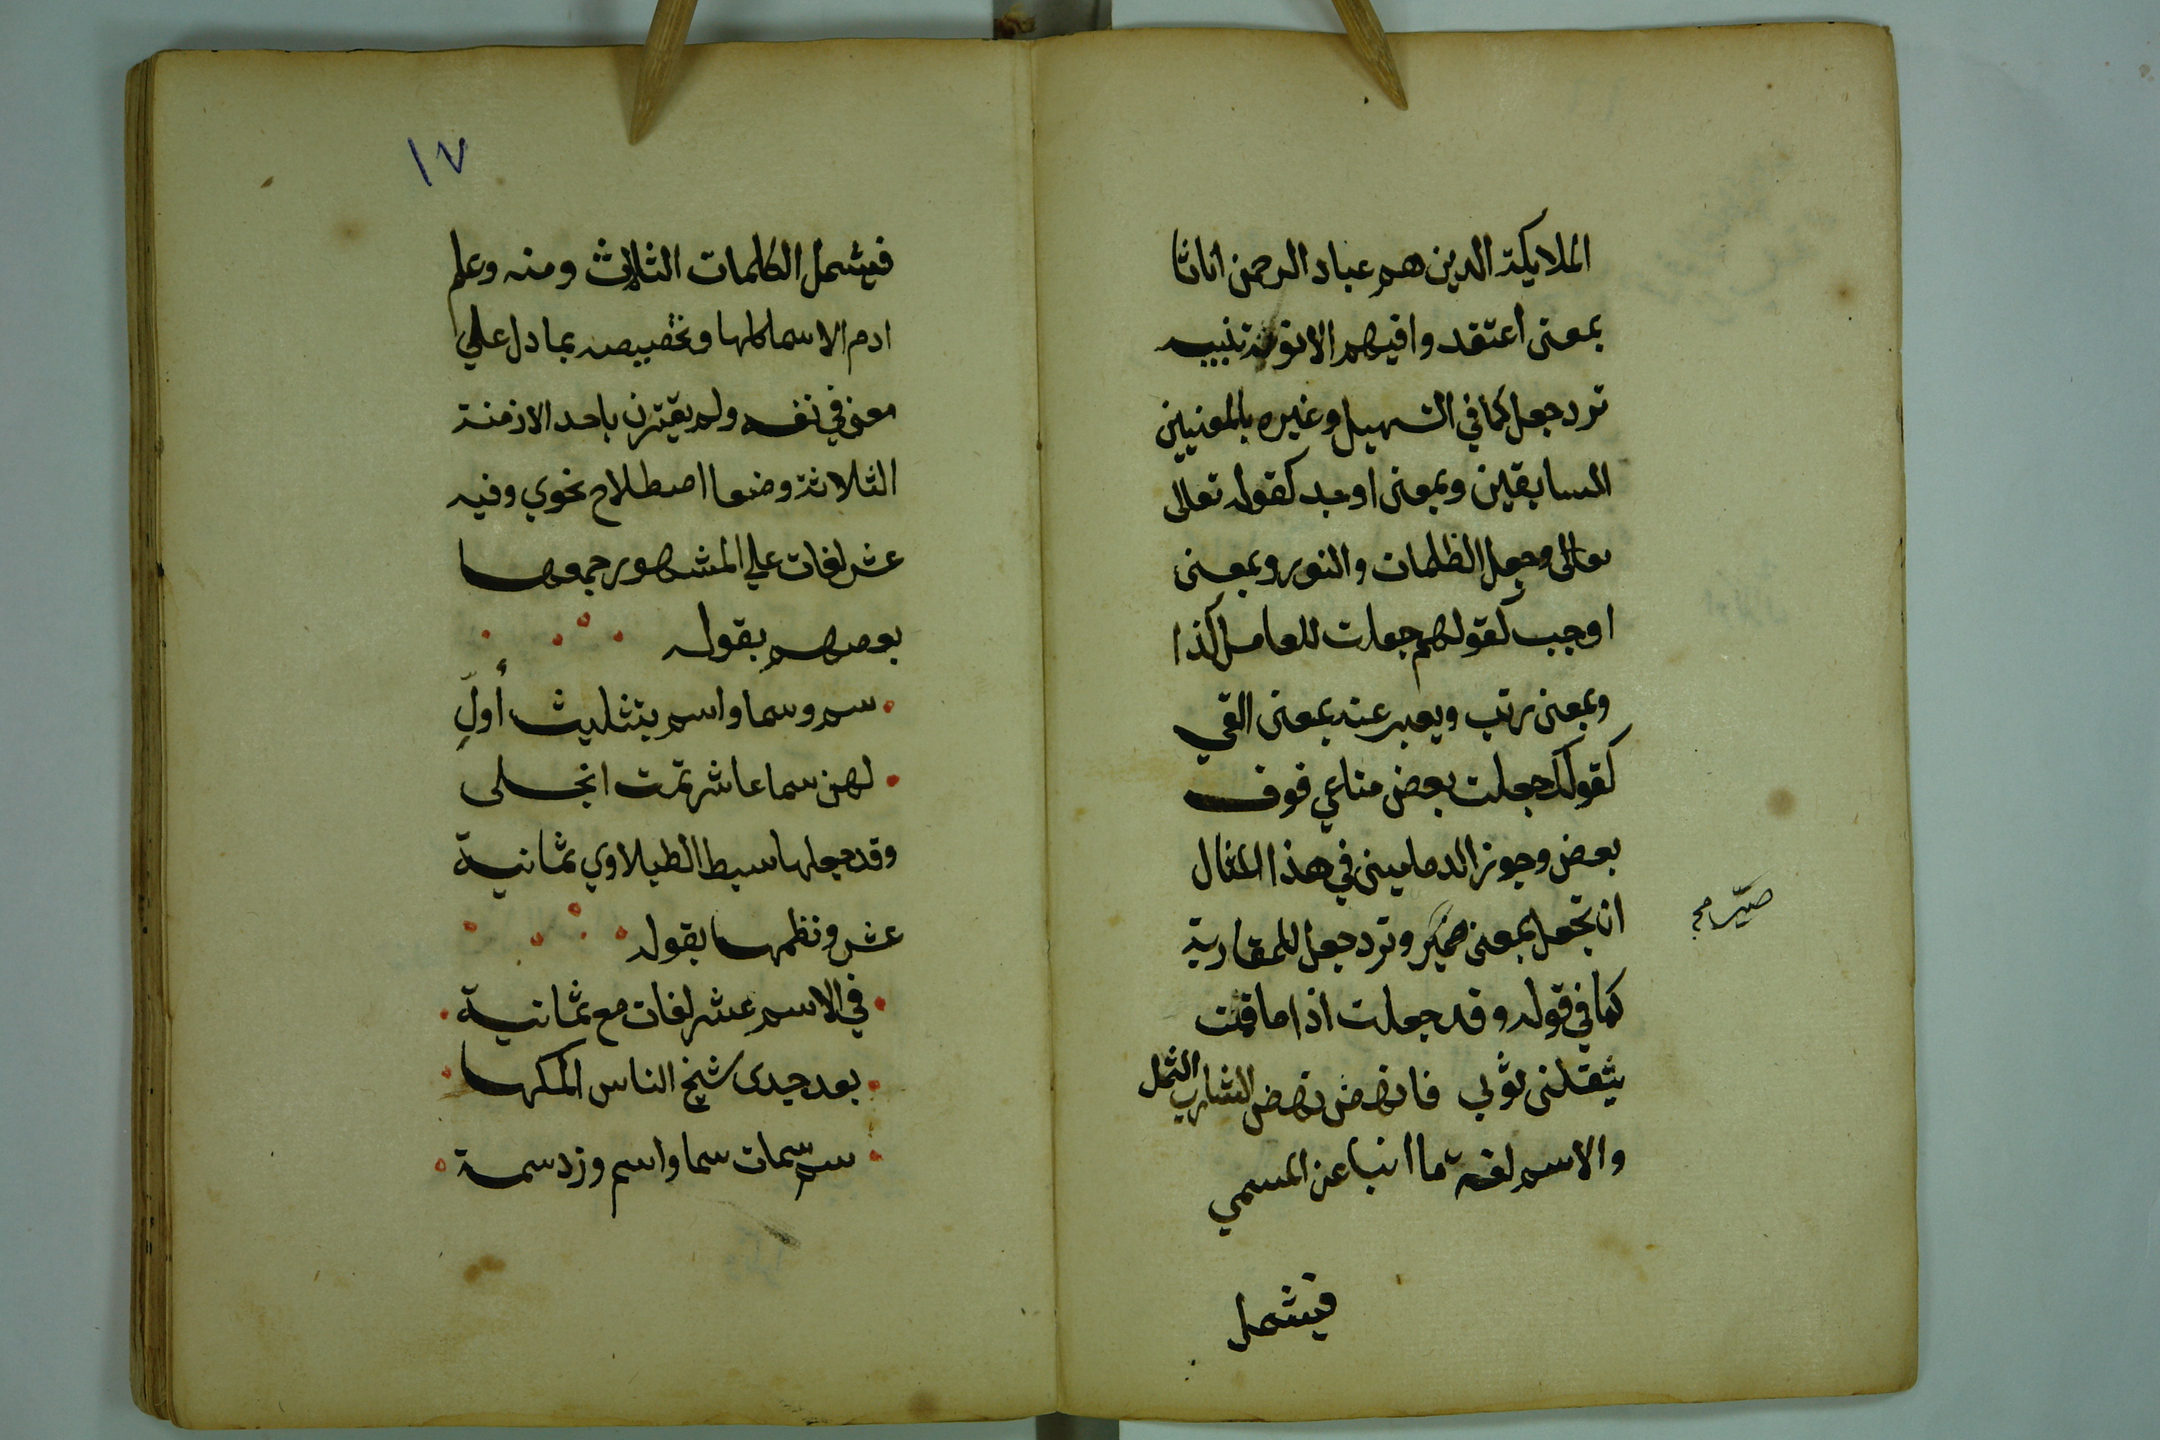 الملايكة الدين هم عباد الرحمن اناثا
بمعنى أعتقد وافيهم الانوثة تنبيه
ترد جعل كما في التسهيل وغيره بالمعنيين
السابقين وبمعنى اوجد كقوله تعالى
تعالى وجعل الظلمات والنور وبمعنى
اوجب كقولهم جعلت للعامل كذا
وبمعنى رتب ويعبر عنه بمعنى القي
كقولك جعلت بعض متاعي فوق
بعض وجوز الدماميني في هذا المثال
ان تجعل بمعنى صير وترد جعل للمقاربة
صيّر
كما في قوله وقد جعلت اذا ما قمت
يثقلنى ثوبي فانهض نهض الشارب الثمل
والاسم لغة ما انبا عن المسمي
فيشمل
١٧
فيشمل الكلمات الثلاث ومنه وعلم
ادم الاسما كلها وتخصيصه بما دل علي
معنى في نفسه ولم يقترن باحد الازمنة
الثلاثة وضعا اصطلاح نحوي وفيه
عشر لغات علي المشهور جمعها
بعضهم بقوله
سم وسما واسم بتثليث أولِ
لهن سما عاشر تمت انجلى
وقد جعلها سبط الطبلاوي ثمانية
عشر ونظمها بقوله
في الاسم عشر لغات مع ثمانية
بعد جدى شيخ الناس اكملها
سم سمات سما واسم وزد سمة